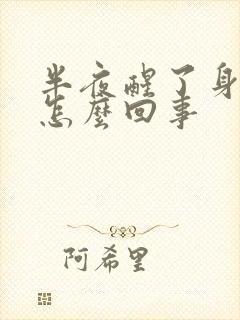 半夜醒了身
怎麼回事
阿希里